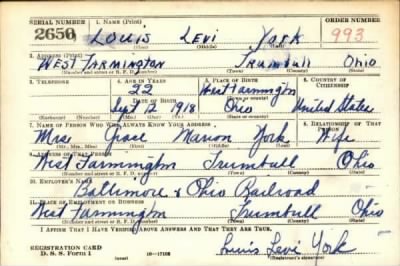 SERIAL NUMBER 1. NAME (Print) ORDER NUMBER
2650 LOUIS LEVI York 993
(First) (Middle) (Last)
2. ADDRESS (Print)
WEST FARMINGTON TRUMBULL Ohio
(Number and street or R. F. D. number) (Town) (County) (State)
3. TELEPHONE 4. AGE IN YEARS 5. PLACE OF BIRTH 6. COUNTRY OF CITIZENSHIP
22 West Farmington
DATE OF BIRTH
Sept 12 1918 Ohio United States
(Exchange) (Number) (Mo.) (Day) (Yr.) (State or country)
7. NAME OF PERSON WHO WILL ALWAYS KNOW YOUR ADDRESS 8. RELATIONSHIP OF THAT PERSON
Mrs Grace Marion York Wife
(Mr., Mrs., Miss) (First) (Middle) (Last)
9. ADDRESS OF THAT PERSON
West Farmington Trumbull Ohio
(Number and street or R. F. D. number) (Town) (County) (State)
10. EMPLOYER'S NAME
Baltimore & Ohio Railroad
11. PLACE OF EMPLOYMENT OR BUSINESS
West Farmington Trumbull Ohio
(Number and street or R. F. D. number) (Town) (County) (State)
I AFFIRM THAT I HAVE VERIFIED ABOVE ANSWERS AND THAT THEY ARE TRUE.
REGISTRATION CARD Louis Levi York
D. S. S. Form 1 (Registrant's signature)